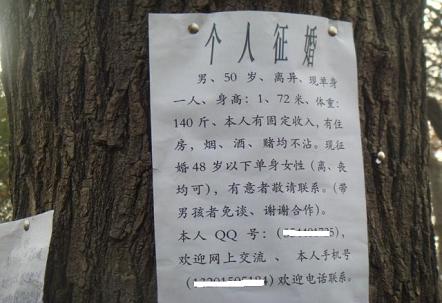 个人征婚
男、50岁、离异、现单身
一人、身高：1、72米、体重：
140斤、本人有固定收入，有住
房，烟、酒、赌均不沾。现征
婚48岁以下单身女性（离、丧
均可），有意者敬请联系。（带
男孩者免谈、谢谢合作）。
本人QQ号：（），
欢迎网上交流、本人手机号
（）欢迎电话联系。